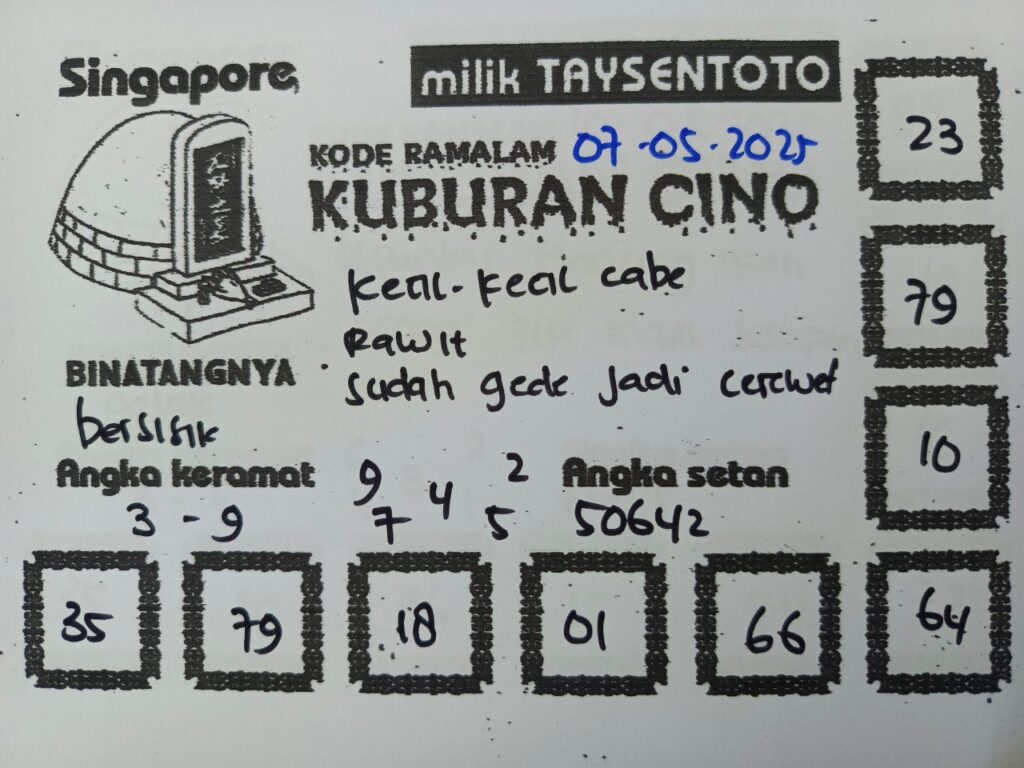 Singapore
milik TAYSENTOTO
KODE RAMALAM 07-05-2025
KUBURAN CINO
kecil-kecil cabe
Rawit
sudah gede jadi cerewet
BINATANGNYA
bersisik
Angka keramat
3 - 9
9 4 2
7 5
Angka setan
50642
23
79
10
35 79 18 01 66 64